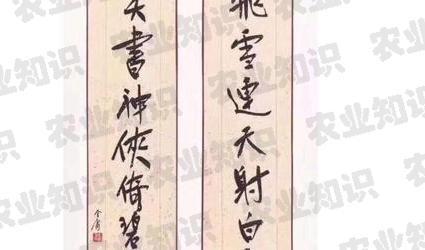 飛雪連天射白
書神俠倚碧
金庸
农业知识
农业知识
农业知识
农业知识
农业知识
农业知识